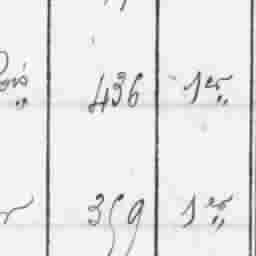 436 1er
359 1er